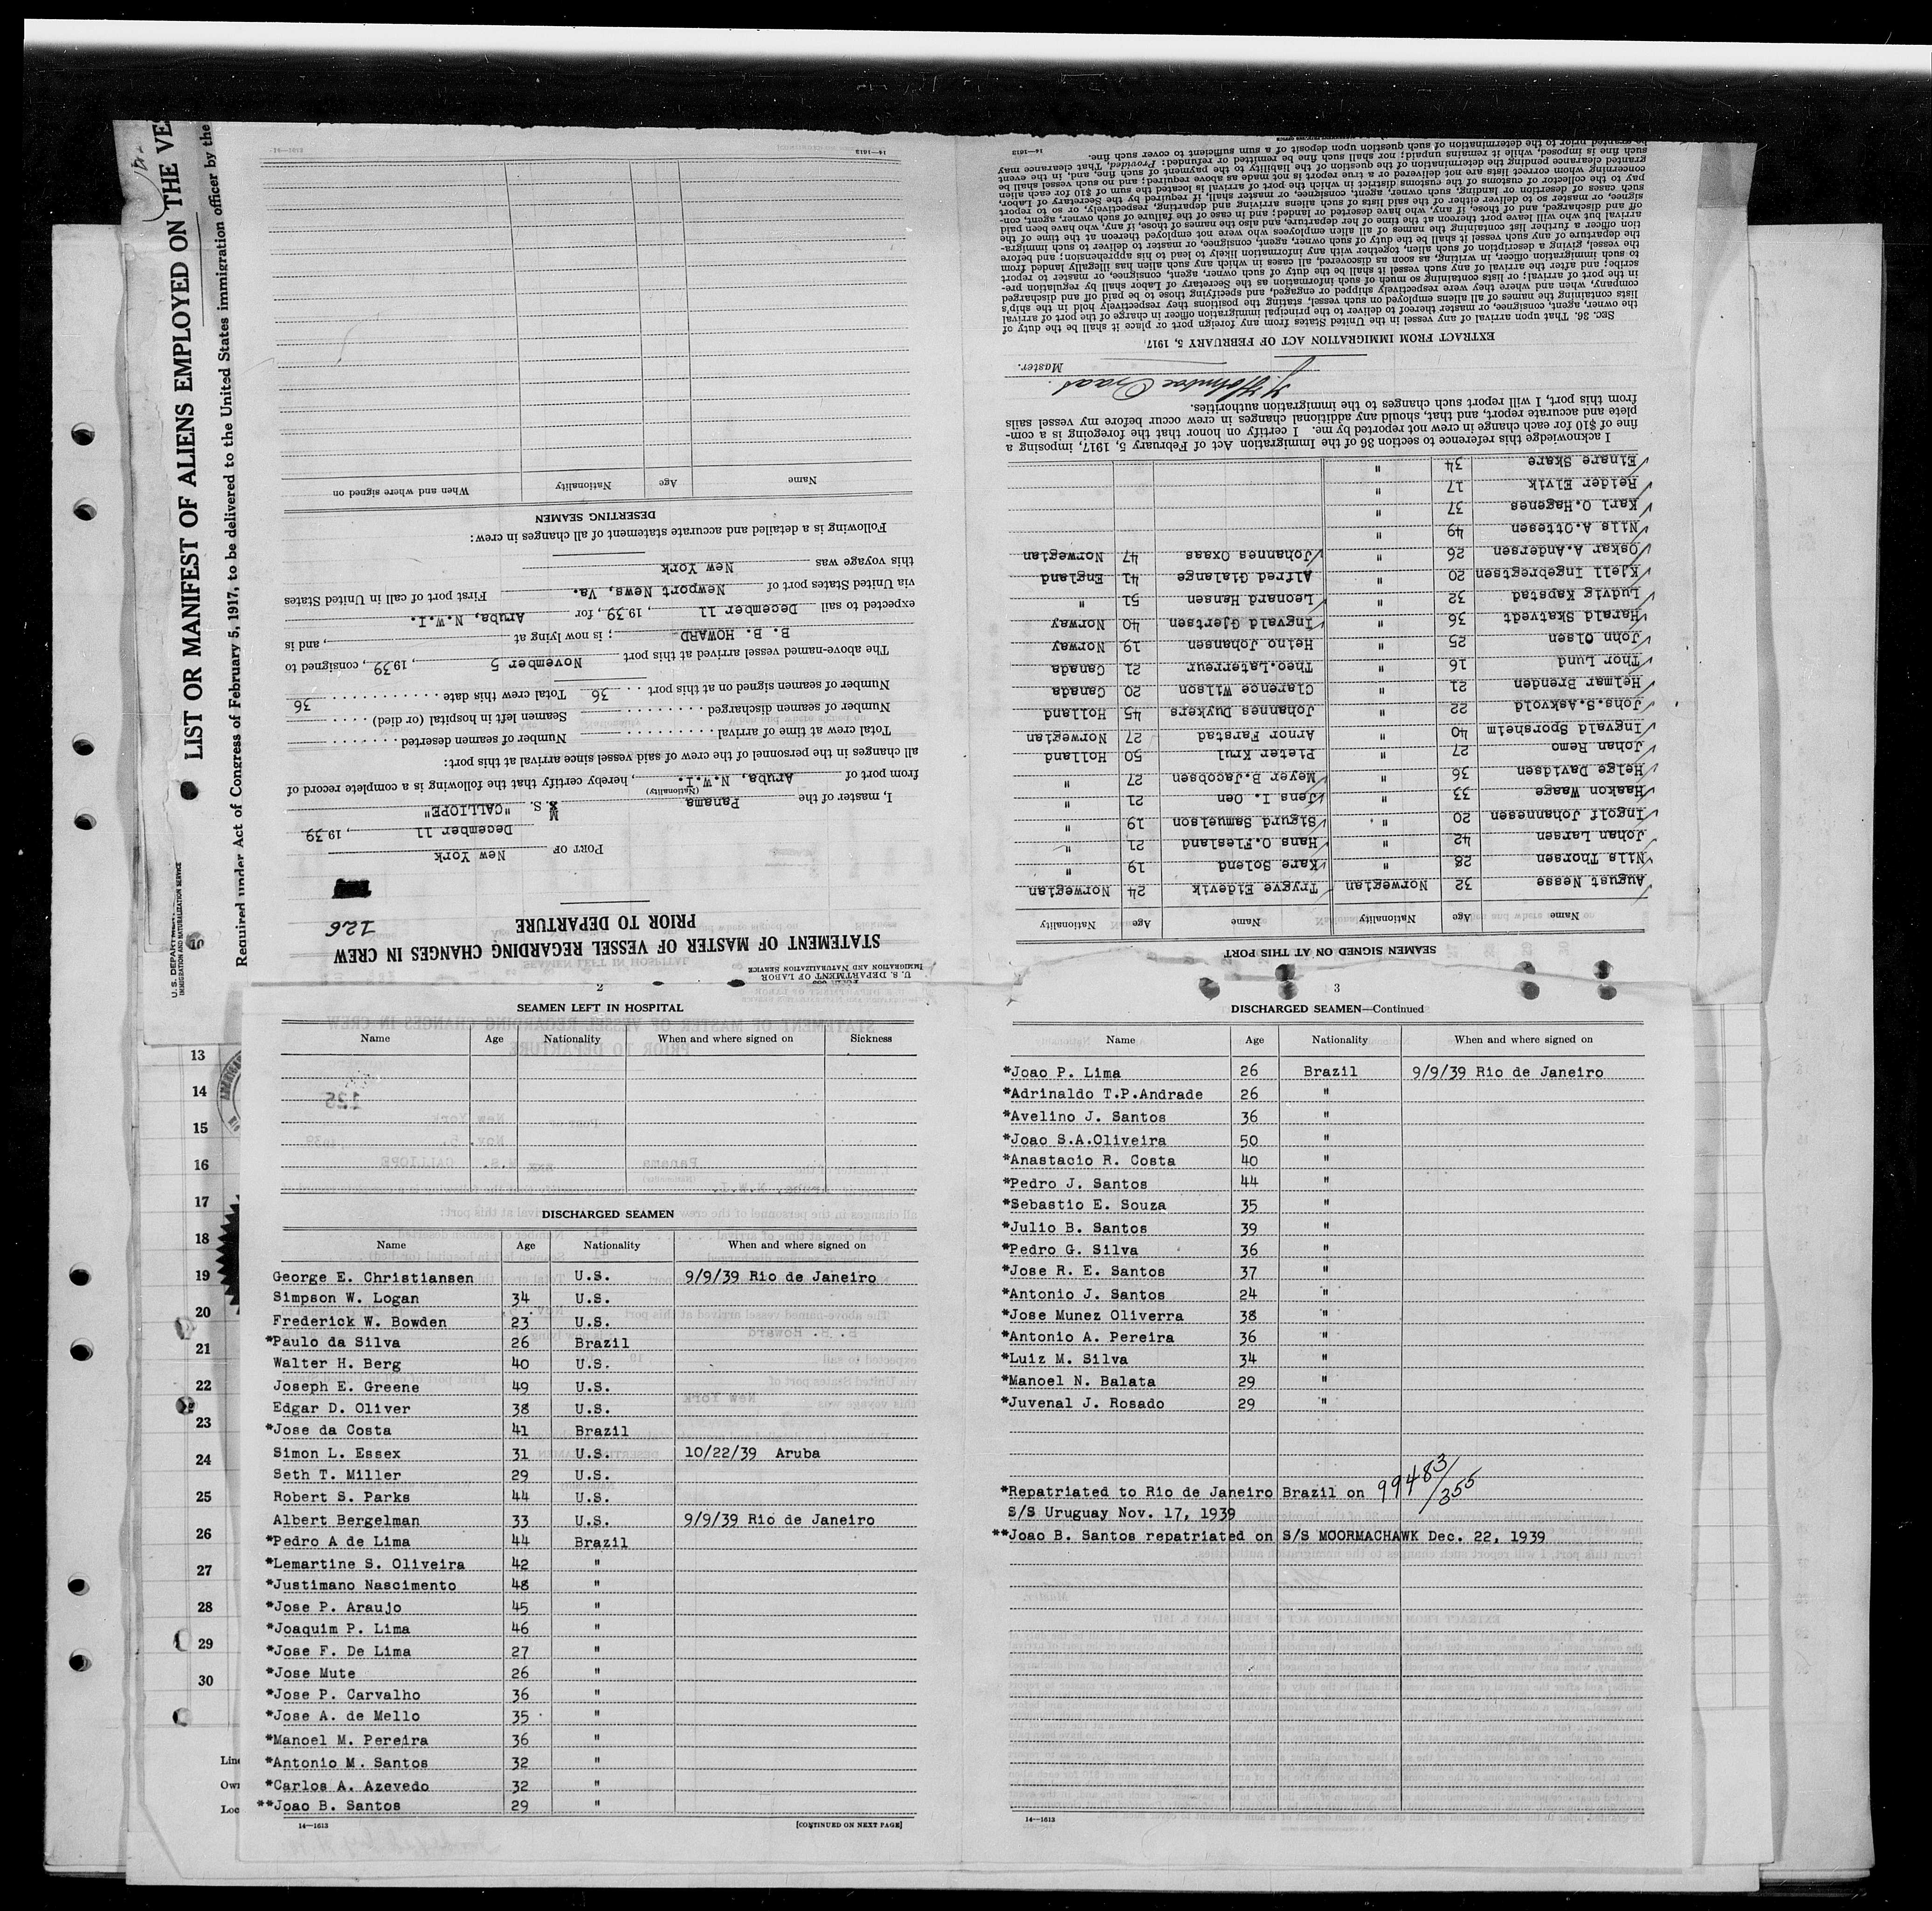 LIST OR MANIFEST OF ALIENS EMPLOYED ON THE VE
Required under Act of Congress of February 5, 1917, to be delivered to the United States immigration officer by the
IMMIGRATION AND NATURALIZATION SERVICE
U. S. DEPARTMENT OF LABOR
IMMIGRATION AND NATURALIZATION SERVICE
STATEMENT OF MASTER OF VESSEL REGARDING CHANGES IN CREW
PRIOR TO DEPARTURE
126
PORT OF New York
December 11, 1939
I, master of the Panama M.S. "CALLIOPE"
(Nationality)
from port of Aruba, N.W.I., hereby certify that the following is a complete record of
all changes in the personnel of the crew of said vessel since arrival at this port:
Total crew at time of arrival Number of seamen deserted
Number of seamen discharged Seamen left in hospital (or died)
Number of seamen signed on at this port 36 Total crew this date 36
The above-named vessel arrived at this port November 5, 1939, consigned to
B. B. HOWARD; is now lying at, and is
expected to sail December 11, 1939, for Aruba, N.W.I.
via United States port of Newport News, Va. First port of call in United States
this voyage was New York
Following is a detailed and accurate statement of all changes in crew:
DESERTING SEAMEN
Name Age Nationality When and where signed on
14—1613
SEAMEN SIGNED ON AT THIS PORT
Name Age Nationality Name Age Nationality
August Nesse 32 Norwegian Trygve Eidevik 24 Norwegian
Nils Thorsen 28 " Kare Solend 19 "
Johan Larsen 42 " Hans O.Flesland 21 "
Ingolf Johannesen 20 " Sigurd Samuelson 19 "
Haakon Waage 33 " Jens I. Oen 21 "
Helge Davidsen 36 " Meyer B.Jacobsen 27 "
Johan Remo 27 " Pieter Krul 50 Holland
Ingvald Sporsheim 40 " Arnor Farstad 27 Norwegian
Johs.S.Askvold 22 " Johannes Duykers 45 Holland
Helmar Brenden 21 " Clarence Wilson 20 Canada
Thor Lund 16 " Theo.Laterreur 21 Canada
John Olsen 25 " Heino Johansen 19 Norway
Harald Skatvedt 36 " Ingvald Gjertsen 40 Norway
Ludvig Kapstad 32 " Leonard Hansen 51 "
Kjell Ingebregtsen 20 " Alfred Gialange 41 England
Oskar A.Andersen 26 " Johannes Oxaas 47 Norwegian
Nils A.Ottesen 49 "
Karl O.Hagenes 37 "
Reider Elvik 17 "
Einare Skare 34 "
I acknowledge this reference to section 36 of the Immigration Act of February 5, 1917, imposing a
fine of $10 for each change in crew not reported by me. I certify on honor that the foregoing is a com-
plete and accurate report, and that, should any additional changes in crew occur before my vessel sails
from this port, I will report such changes to the immigration authorities.
Master.
EXTRACT FROM IMMIGRATION ACT OF FEBRUARY 5, 1917
SEC. 36. That upon arrival of any vessel in the United States from any foreign port or place it shall be the duty of
the owner, agent, consignee, or master thereof to deliver to the principal immigration officer in charge of the port of arrival
lists containing the names of all aliens employed on such vessel, stating the positions they respectively hold in the ship's
company, when and where they were respectively shipped or engaged, and specifying those to be paid off and discharged
in the port of arrival; or lists containing so much of such information as the Secretary of Labor shall by regulation pre-
scribe; and after the arrival of any such vessel it shall be the duty of such owner, agent, consignee, or master to report
to such immigration officer, in writing, as soon as discovered, all cases in which any such alien has illegally landed from
the vessel, giving a description of such alien, together with any information likely to lead to his apprehension; and before
the departure of any such vessel it shall be the duty of such owner, agent, consignee, or master to deliver to such immigra-
tion officer a further list containing the names of all alien employees who were not employed thereon at the time of the
arrival but who will leave port thereon at the time of her departure, and also the names of those, if any, who have been paid
off and discharged, and of those, if any, who have deserted or landed; and in case of the failure of such owner, agent, con-
signee, or master so to deliver either of the said lists of such aliens arriving and departing, respectively, or so to report
such cases of desertion or landing, such owner, agent, consignee, or master shall, if required by the Secretary of Labor,
pay to the collector of customs of the customs district in which the port of arrival is located the sum of $10 for each alien
concerning whom correct lists are not delivered or a true report is not made as above required; and no such vessel shall be
granted clearance pending the determination of the question of the liability to the payment of such fine, and, in the event
such fine is imposed, while it remains unpaid; nor shall such fine be remitted or refunded: Provided, That clearance may
be granted prior to the determination of such question upon deposit of a sum sufficient to cover such fine.
14—1613
2
SEAMEN LEFT IN HOSPITAL
Name Age Nationality When and where signed on Sickness
DISCHARGED SEAMEN
Name Age Nationality When and where signed on
George E. Christiansen U.S. 9/9/39 Rio de Janeiro
Simpson W. Logan 34 U.S.
Frederick W. Bowden 23 U.S.
*Paulo da Silva 26 Brazil
Walter H. Berg 40 U.S.
Joseph E. Greene 49 U.S.
Edgar D. Oliver 38 U.S.
*Jose da Costa 41 Brazil
Simon L. Essex 31 U.S. 10/22/39 Aruba
Seth T. Miller 29 U.S.
Robert S. Parks 44 U.S.
Albert Bergelman 33 U.S. 9/9/39 Rio de Janeiro
*Pedro A de Lima 44 Brazil
*Lemartine S. Oliveira 42 "
*Justimano Nascimento 48 "
*Jose P. Araujo 45 "
*Joaquim P. Lima 46 "
*Jose F. De Lima 27 "
*Jose Mute 26 "
*Jose P. Carvalho 36 "
*Jose A. de Mello 35 "
*Manoel M. Pereira 36 "
*Antonio M. Santos 32 "
*Carlos A. Azevedo 32 "
**Joao B. Santos 29 "
14—1613 [CONTINUED ON NEXT PAGE]
3
DISCHARGED SEAMEN—Continued
Name Age Nationality When and where signed on
*Joao P. Lima 26 Brazil 9/9/39 Rio de Janeiro
*Adrinaldo T.P.Andrade 26 "
*Avelino J. Santos 36 "
*Joao S.A.Oliveira 50 "
*Anastacio R. Costa 40 "
*Pedro J. Santos 44 "
*Sebastio E. Souza 35 "
*Julio B. Santos 39 "
*Pedro G. Silva 36 "
*Jose R. E. Santos 37 "
*Antonio J. Santos 24 "
*Jose Munez Oliverra 38 "
*Antonio A. Pereira 36 "
*Luiz M. Silva 34 "
*Manoel N. Balata 29 "
*Juvenal J. Rosado 29 "
*Repatriated to Rio de Janeiro Brazil on 99483/355
S/S Uruguay Nov. 17, 1939
**Joao B. Santos repatriated on S/S MOORMACHAWK Dec. 22, 1939
14—1613
13
14
15
16
17
18
19
20
21
22
23
24
25
26
27
28
29
30